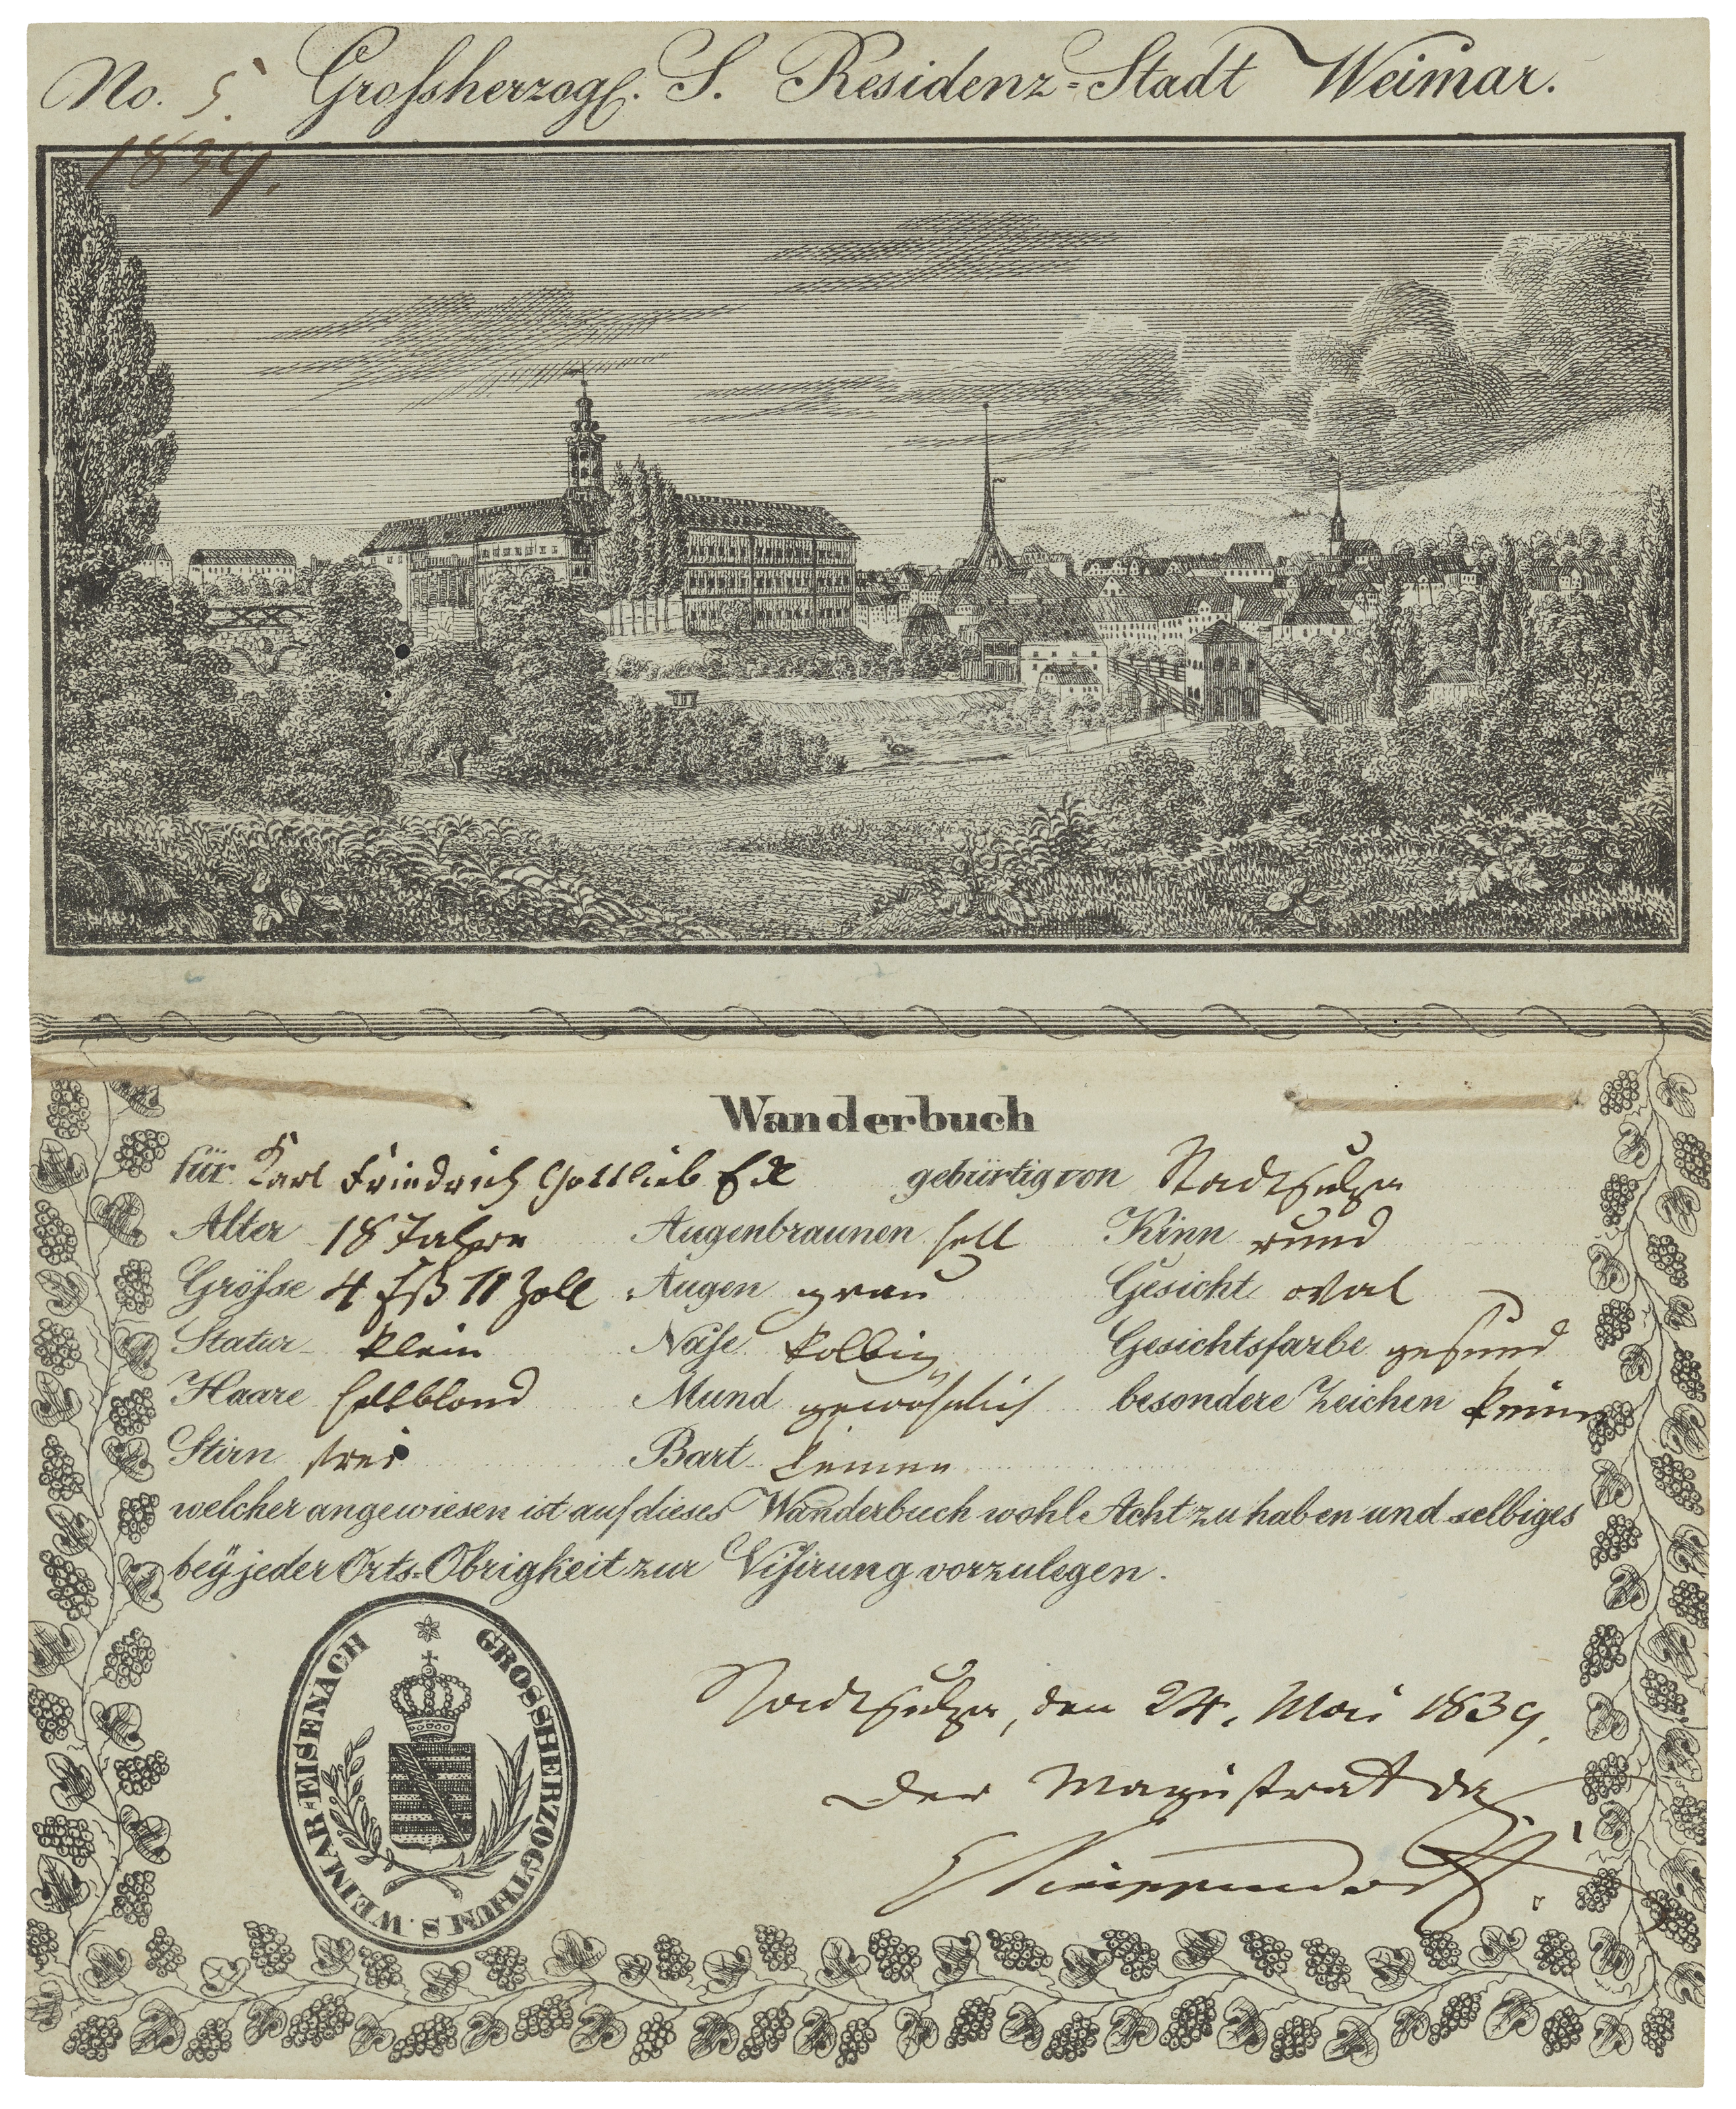 No. 5. Grossherzogl. S. Residenz-Stadt Weimar.
1839.
Wanderbuch
für Karl Friedrich Gottlieb gebürtig von Stadtsulza
Alter 18 Jahre Augenbraunen hell Kinn rund
Grösse 4 Fß 11 Zoll Augen grau Gesicht oval
Statur klein Nase kolbig Gesichtsfarbe gesund
Haare hellblond Mund gewöhnlich besondere Zeichen keine
Stirn frei Bart keinen
welcher angewiesen ist auf dieses Wanderbuch wohl Acht zu haben und selbiges
beÿ jeder Orts-Obrigkeit zur Visirung vorzulegen.
GROSSHERZOGTHUM S. WEIMAR-EISENACH
Stadtsulza, den 24. Mai 1839.
Der Magistrat das.